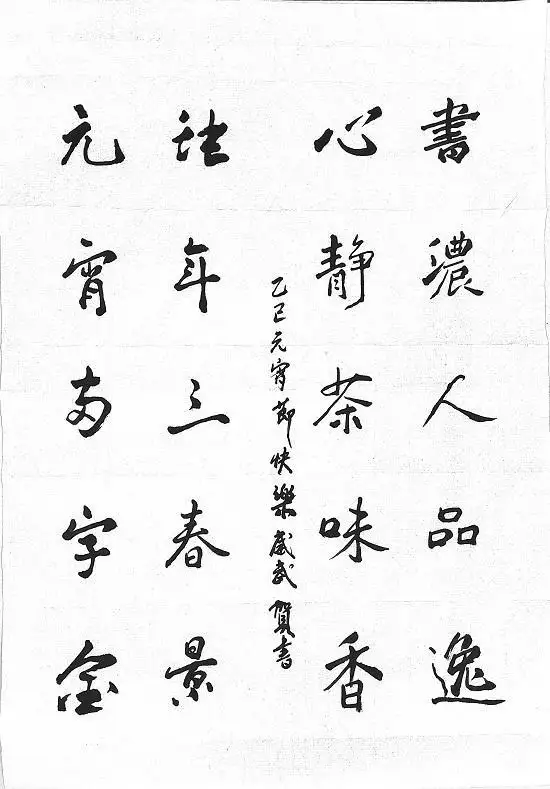 書濃人品逸
心静茶味香
乙巳元宵節快樂賀書
蛇年三春景
元宵两字金